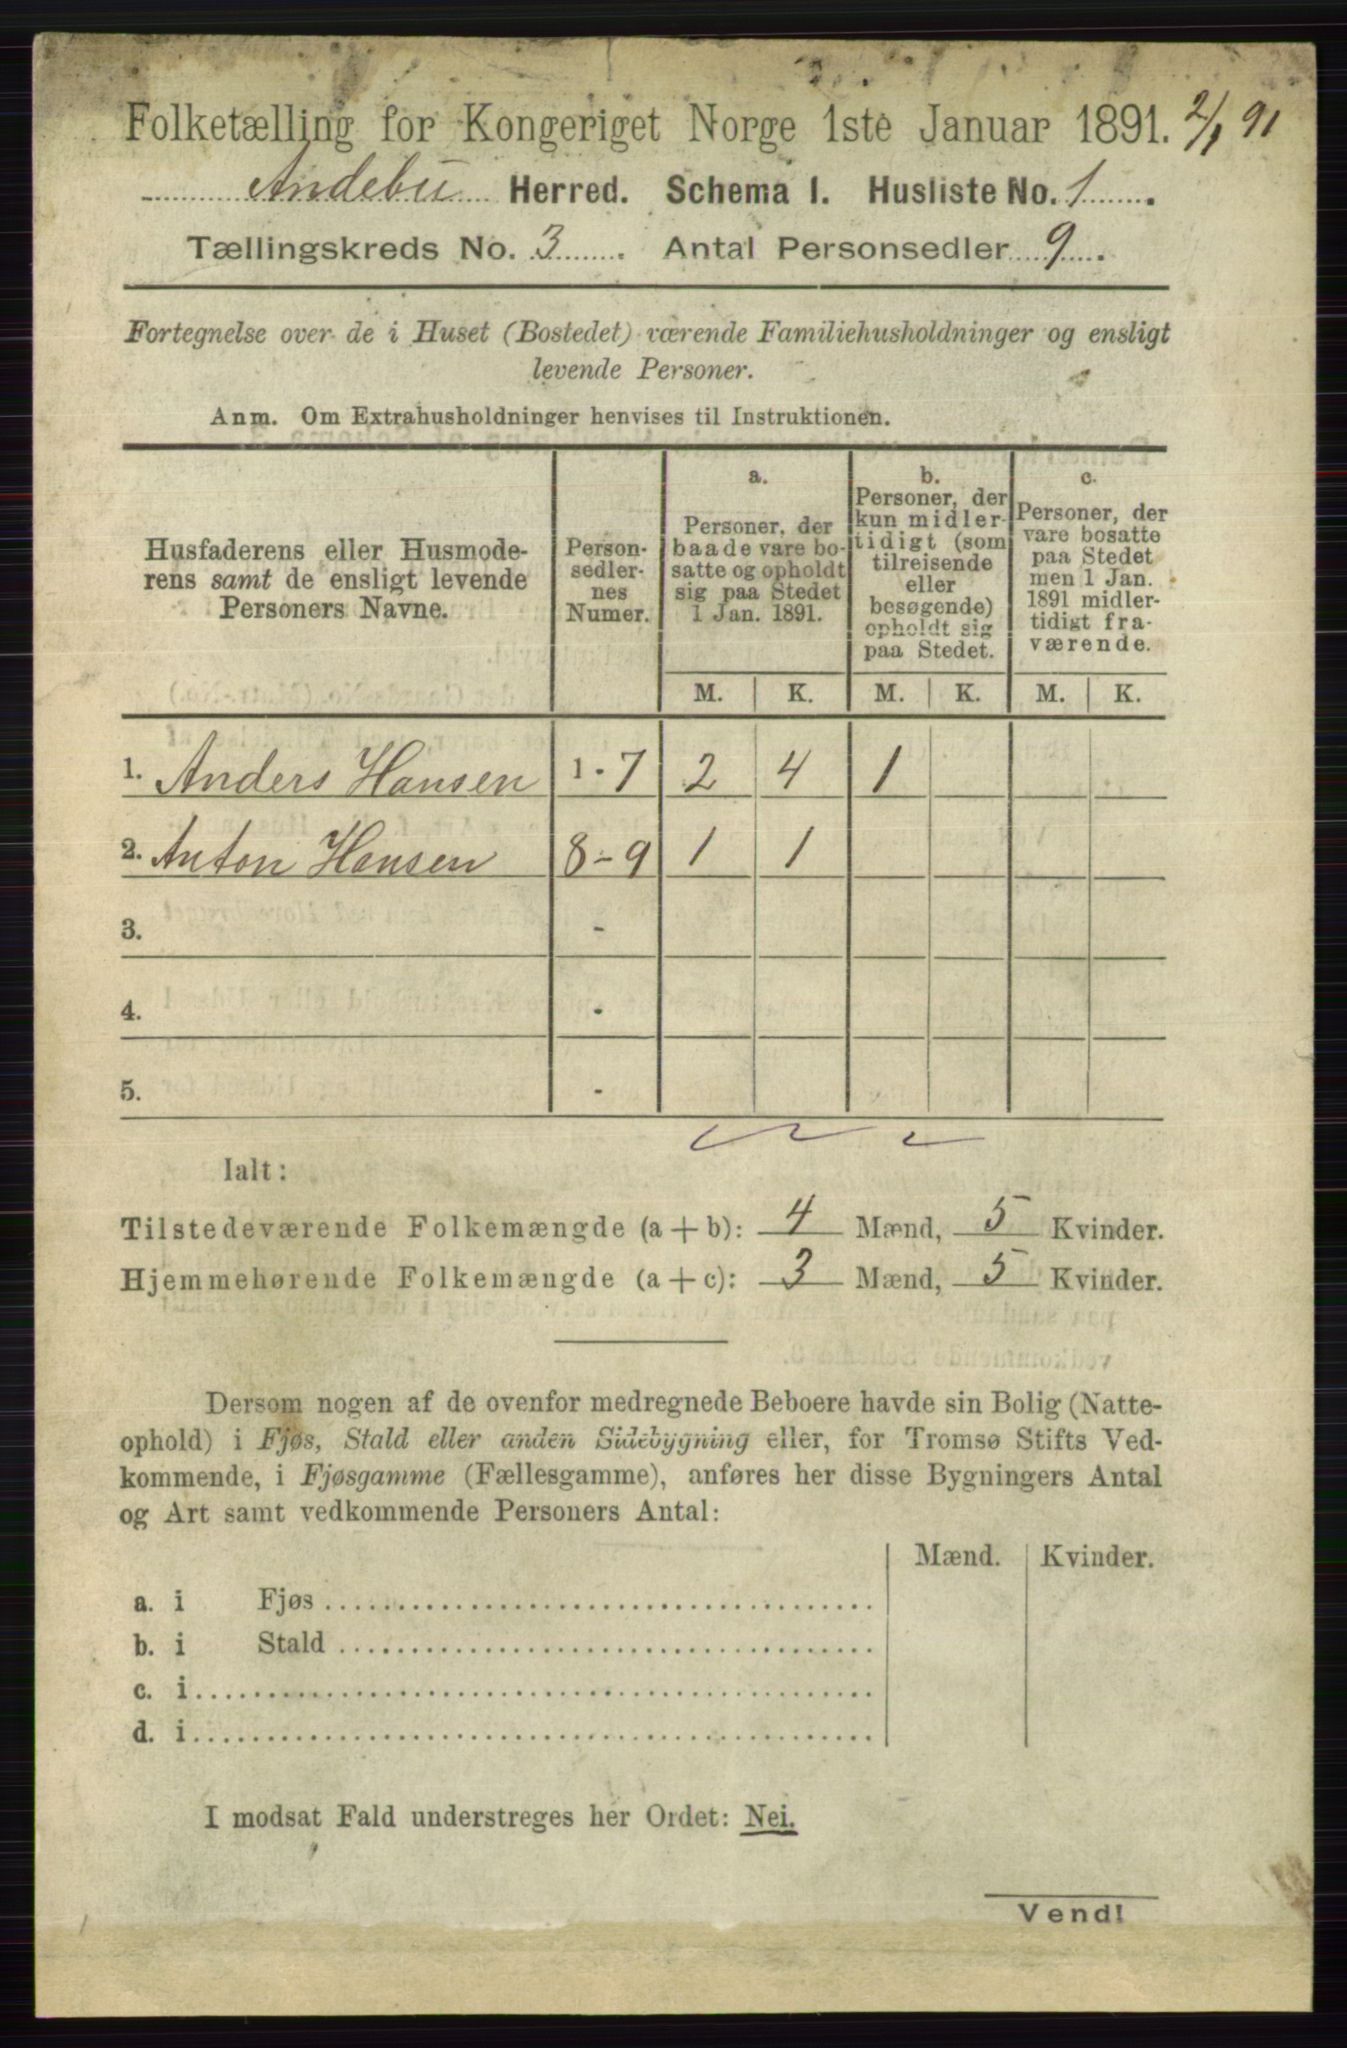 Folketælling for Kongeriget Norge 1ste Januar 1891. 2/1 91
Andebu Herred. Schema 1. Husliste No. 1.
Tællingskreds No. 3. Antal Personsedler 9.
Fortegnelse over de i Huset (Bostedet) værende Familiehusholdninger og ensligt
levende Personer.
Anm. Om Extrahusholdninger henvises til Instruktionen.
Husfaderens eller Husmode-
rens samt de ensligt levende
Personers Navne.
Person-
sedler-
nes
Numer.
a.
Personer, der
baade vare bo-
satte og opholdt
sig paa Stedet
1 Jan. 1891.
b.
Personer, der
kun midler-
tidigt (som
tilreisende
eller
besøgende)
opholdt sig
paa Stedet.
c.
Personer, der
vare bosatte
paa Stedet
men 1 Jan.
1891 midler-
tidigt fra-
værende.
M. K. M. K. M. K.
1. Anders Hansen 1-7 2 4 1
2. Anton Hansen 8-9 1 1
3. -
4. -
5. -
Ialt:
Tilstedeværende Folkemængde (a + b): 4 Mænd, 5 Kvinder.
Hjemmehørende Folkemængde (a + c): 3 Mænd, 5 Kvinder.
Dersom nogen af de ovenfor medregnede Beboere havde sin Bolig (Natte-
ophold) i Fjøs, Stald eller anden Sidebygning eller, for Tromsø Stifts Ved-
kommende, i Fjøsgamme (Fællesgamme), anføres her disse Bygningers Antal
og Art samt vedkommende Personers Antal:
Mænd. Kvinder.
a. i Fjøs
b. i Stald
c. i
d. i
I modsat Fald understreges her Ordet: Nei.
Vend!